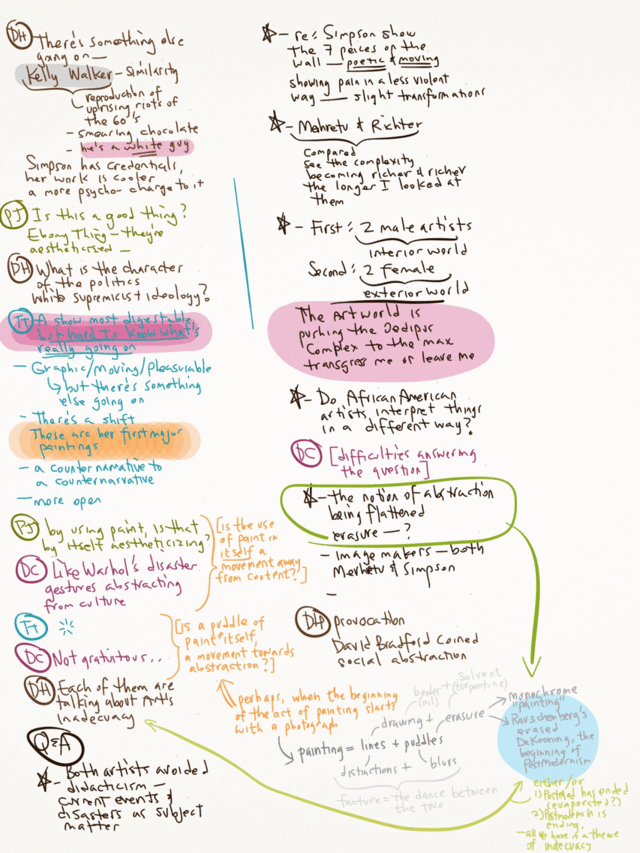 DH There's something else
going on —
Kelly Walker - Similarity
reproduction of
uprising riots of
the 60's
- smearing chocolate
- he's a white guy
Simpson has credentials,
her work is cooler
a more psycho-charge to it
PJ Is this a good thing?
Ebony Thing - they're
aestheticized —
DH What is the character
of the politics
White supremicist ideology?
TT A show most digestable
but hard to know what's
really going on
- Graphic/moving/pleasurable
but there's something
else going on
- There's a shift
These are her first major
paintings
- a counter narrative to
a counternarrative
- more open
PJ by using paint, is that
by itself aestheticizing?
DC Like Warhol's disaster
gestures abstracting
from culture
TT
DC Not gratuitous..
DH Each of them are
talking about Art's
Inadecuacy
Q&A
- Both artists avoided
didacticism —
current events &
disasters as subject
matter
[is the use
of paint in
itself a
movement away
from content?]
[is a puddle of
paint itself,
a movement towards
abstraction?]
perhaps, when the beginning
of the act of painting starts
with a photograph
- re: Simpson show
the 7 peices of the
wall — poetic & moving
showing pain in a less violent
way — slight transformations
- Mehretu & Richter
Compared
see the complexity
becoming richer & richer
the longer I looked at
them
- First: 2 male artists
interior world
Second: 2 female
exterior world
The Art world is
pushing the Oedipus
Complex to the max
transgress me or leave me
- Do African American
artists interpret things
in a different way?
DC [difficulties answering
the question]
- the notion of abstraction
being flattered
erasure — ?
- image makers — both
Merhetu & Simpson
-
DH provocation
David Bradford coined
social abstraction
binder + solvent
(oil) (turpentine)
drawing + erasure
painting = lines + puddles
distinctions + blurs
facture = the dance between
the two
monochrome
"painting"
Rauschenberg's
erased
DeKooning, the
beginning of
Postmodernism
either/or
1) Postmod has ended
(evaporated?)
2) Postmodernism is
ending,
- all to have a theme
of indecuacy